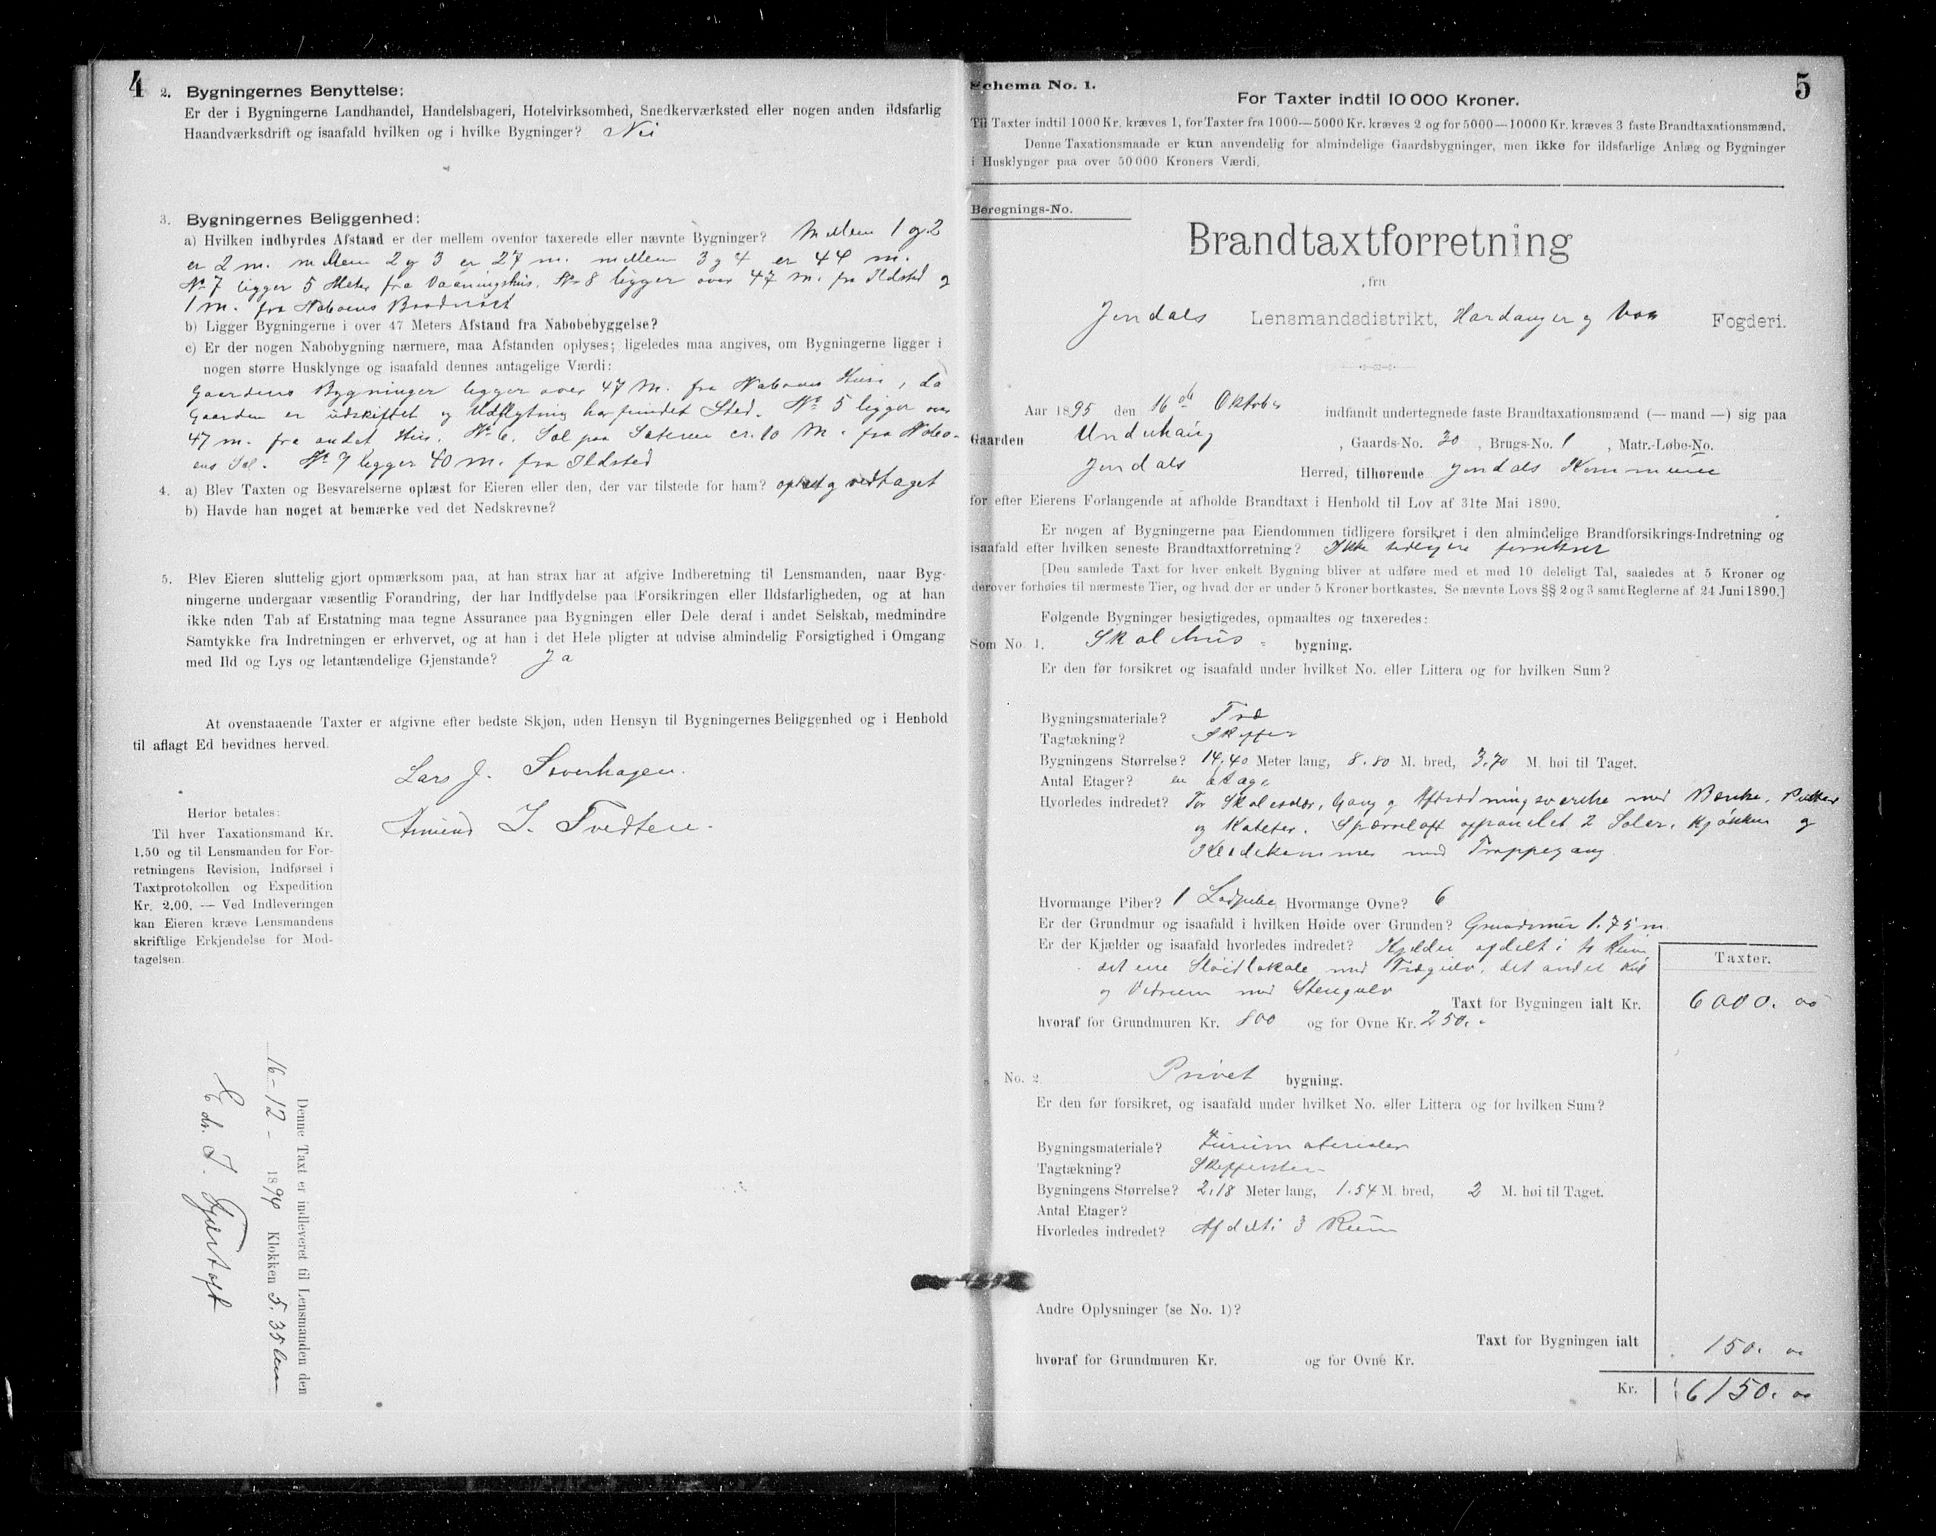 4
2. Bygningernes Benyttelse:
Er der i Bygningerne Landhandel, Handelsbageri, Hotelvirksomhed, Snedkerværksted eller nogen anden ildsfarlig
Haandværksdrift og isaafald hvilken og i hvilke Bygninger? Nei
3. Bygningernes Beliggenhed:
a) Hvilken indbyrdes Afstand er der mellem ovenfor taxerede eller nævnte Bygninger? Mellem 1 og 2
er 2 m. mellem 2 og 3 er 27 m. mellem 3 og 4 er 44 m.
No 7 ligger 5 Meter fra Vaaningshus. No 8 ligger over 47 m. fra Ildsted og
1 m. fra Naboens
b) Ligger Bygningerne i over 47 Meters Afstand fra Nabobebyggelse?
c) Er der nogen Nabobygning nærmere, maa Afstanden oplyses; ligeledes maa angives, om Bygningerne ligger i
nogen større Husklynge og isaafald dennes antagelige Værdi:
Gaardens Bygninger ligger over 47 M. fra Naboens Huse, da
Gaarden er udskiftet og Udflytning har fundet Sted. No 5 ligger over
47 m. fra andet Hus. No 6. Sel paa Sæteren cr. 10 M. fra Nabo-
ens Sel. No 9 ligger 40 m. fra Ildsted
4. a) Blev Taxten og Besvarelserne oplæst for Eieren eller den, der var tilstede for ham? oplæst og vedtaget
b) Havde han noget at bemærke ved det Nedskrevne?
5. Blev Eieren sluttelig gjort opmærksom paa, at han strax har at afgive Indberetning til Lensmanden, naar Byg-
ningerne undergaar væsentlig Forandring, der har Indflydelse paa Forsikringen eller Ildsfarligheden, og at han
ikke uden Tab af Erstatning maa tegne Assurance paa Bygningen eller Dele deraf i andet Selskab, medmindre
Samtykke fra Indretningen er erhvervet, og at han i det Hele pligter at udvise almindelig Forsigtighed i Omgang
med Ild og Lys og letantændelige Gjenstande? Ja
At ovenstaaende Taxter er afgivne efter bedste Skjøn, uden Hensyn til Bygningernes Beliggenhed og i Henhold
til aflagt Ed bevidnes herved.
Lars J.
Amund I. Tvedten.
Herfor betales:
Til hver Taxationsmand Kr.
1.50 og til Lensmanden for For-
retningens Revision, Indførsel i
Taxtprotokollen og Expedition
Kr. 2.00. — Ved Indleveringen
kan Eieren kræve Lensmandens
skriftlige Erkjendelse for Mod-
tagelsen.
Denne Taxt er indleveret til Lensmanden den
16-12- 1894 Klokken 5.35
5
Schema No. 1.
For Taxter indtil 10 000 Kroner.
Til Taxter indtil 1000 Kr. kræves 1, for Taxter fra 1000—5000 Kr. kræves 2 og for 5000—10000 Kr. kræves 3 faste Brandtaxationsmænd.
Denne Taxationsmaade er kun anvendelig for almindelige Gaardsbygninger, men ikke for ildsfarlige Anlæg og Bygninger
i Husklynger paa over 50 000 Kroners Værdi.
Beregnings-No.
Brandtaxtforretning
fra
Jondals Lensmandsdistrikt, Hardanger og Vos Fogderi.
Aar 1895 den 16de Oktober indfandt undertegnede faste Brandtaxationsmænd (— mand —) sig paa
Gaarden Underhaug, Gaards-No. 30, Brugs-No. 1, Matr.-Løbe-No.
Jondals Herred, tilhørende Jondals Kommune
for efter Eierens Forlangende at afholde Brandtaxt i Henhold til Lov af 31te Mai 1890.
Er nogen af Bygningerne paa Eiendommen tidligere forsikret i den almindelige Brandforsikrings-Indretning og
isaafald efter hvilken seneste Brandtaxtforretning? Ikke tidligere forsikret
[Den samlede Taxt for hver enkelt Bygning bliver at udføre med et med 10 deleligt Tal, saaledes at 5 Kroner og
derover forhøies til nærmeste Tier, og hvad der er under 5 Kroner bortkastes. Se nævnte Lovs §§ 2 og 3 samt Reglerne af 24 Juni 1890.]
Følgende Bygninger besigtigedes, opmaaltes og taxeredes:
Som No. 1. Skolehus bygning.
Er den før forsikret og isaafald under hvilket No. eller Littera og for hvilken Sum?
Bygningsmateriale? Træ
Tagtækning? Skiffer
Bygningens Størrelse? 14,40 Meter lang, 8.80 M. bred, 3,70 M. høi til Taget.
Antal Etager? en etage
Hvorledes indredet? To Skolestuer, Gang og Afklædningsværelse med Bænke, Pulter
og Kateter. Sperreloft oppanelet 2 Soler, Kjøkken og
Klædekammer med Trappegang
Hvormange Piber? 1 Hvormange Ovne? 6
Er der Grundmur og isaafald i hvilken Høide over Grunden? Grundmur 1.75 m.
Er der Kjælder og isaafald hvorledes indredet? Kjælder afdelt i to Rum
det ene Sløidlokale med Trægulv, det andet Kul
og Vedrum med Stengulv
Taxter.
Taxt for Bygningen ialt Kr. 6000. 00
hvoraf for Grundmuren Kr. 800 og for Ovne Kr. 250.-
" No. 2 Privet bygning.
Er den før forsikret, og isaafald under hvilket No. eller Littera og for hvilken Sum?
Bygningsmateriale? Furumaterialer
Tagtækning?
Bygningens Størrelse? 2,18 Meter lang, 1.54 M. bred, 2 M. høi til Taget.
Antal Etager?
Hvorledes indredet? Afdelt i 3 Rum
Andre Oplysninger (se No. 1)?
Taxt for Bygningen ialt 150. 00
hvoraf for Grundmuren Kr. og for Ovne Kr.
Kr. 6150. 00